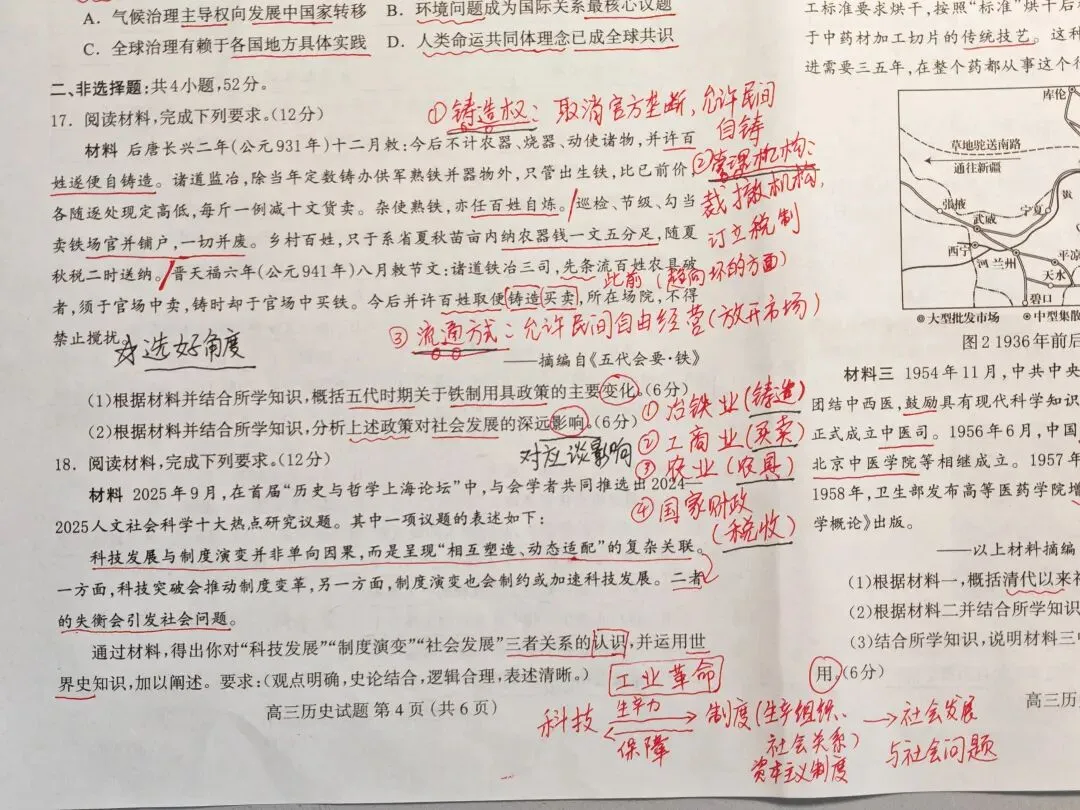 A．气候治理主导权向发展中国家转移 B．环境问题成为国际关系最核心议题
C．全球治理有赖于各国地方具体实践 D．人类命运共同体理念已成全球共识
二、非选择题：共4小题，52分。
17．阅读材料，完成下列要求。（12分）
材料 后唐长兴二年（公元931年）十二月敕：今后不计农器、烧器、动使诸物，并许百
姓逐便自铸造。诸道监冶，除当年定数铸办供军熟铁并器物外，只管出生铁，比已前价
各随逐处现定高低，每斤一例减十文货卖。杂使熟铁，亦任百姓自炼。巡检、节级、勾当
卖铁场官并铺户，一切并废。乡村百姓，只于系省夏秋苗亩内纳农器钱一文五分足，随夏
秋税二时送纳。晋天福六年（公元941年）八月敕节文：诸道铁冶三司，先条流百姓农具破
者，须于官场中卖，铸时却于官场中买铁。今后并许百姓取便铸造买卖，所在场院，不得
禁止搅扰。
——摘编自《五代会要·铁》
（1）根据材料并结合所学知识，概括五代时期关于铁制用具政策的主要变化。（6分）
（2）根据材料并结合所学知识，分析上述政策对社会发展的深远影响。（6分）
18．阅读材料，完成下列要求。（12分）
材料 2025年9月，在首届“历史与哲学上海论坛”中，与会学者共同推选出2024—
2025人文社会科学十大热点研究议题。其中一项议题的表述如下：
科技发展与制度演变并非单向因果，而是呈现“相互塑造、动态适配”的复杂关联。
一方面，科技突破会推动制度变革，另一方面，制度演变也会制约或加速科技发展。二者
的失衡会引发社会问题。
通过材料，得出你对“科技发展”“制度演变”“社会发展”三者关系的认识，并运用世
界史知识，加以阐述。要求：（观点明确，史论结合，逻辑合理，表述清晰。）
高三历史试题 第4页（共6页）
①铸造权：取消官方垄断，允许民间
自铸
②管理机构：
裁撤机构，
订立税制
此前（趋向坏的方面）
③流通方式：允许民间自由经营（放开市场）
☆选好角度
①冶铁业（铸造）
②工商业（买卖）
③农业（农具）
④国家财政
（税收）
对应谈影响
工业革命
科技 生产力 制度（生产组织、 →社会发展
保障 社会关系） 与社会问题
资本主义制度
工标准要求烘干，按照“标准”烘干后
于中药材加工切片的传统技艺。这种
进需要三五年，在整个药都从事这个行
库伦
草地驼送南路
通往新疆
张掖
武威
宁夏
黄
西宁
河
兰州
平凉
天水
碧口
◎大型批发市场 ⊙中型集散
图2 1936年前后
材料三 1954年11月，中共中央
团结中西医，鼓励具有现代科学知识
正式成立中医司。1956年6月，中国
北京中医学院等相继成立。1957年
1958年，卫生部发布高等医药学院增
学概论》出版。
——以上材料摘编
（1）根据材料一，概括清代以来祁
（2）根据材料二并结合所学知识
（3）结合所学知识，说明材料三中
用。（6分）
高三历史